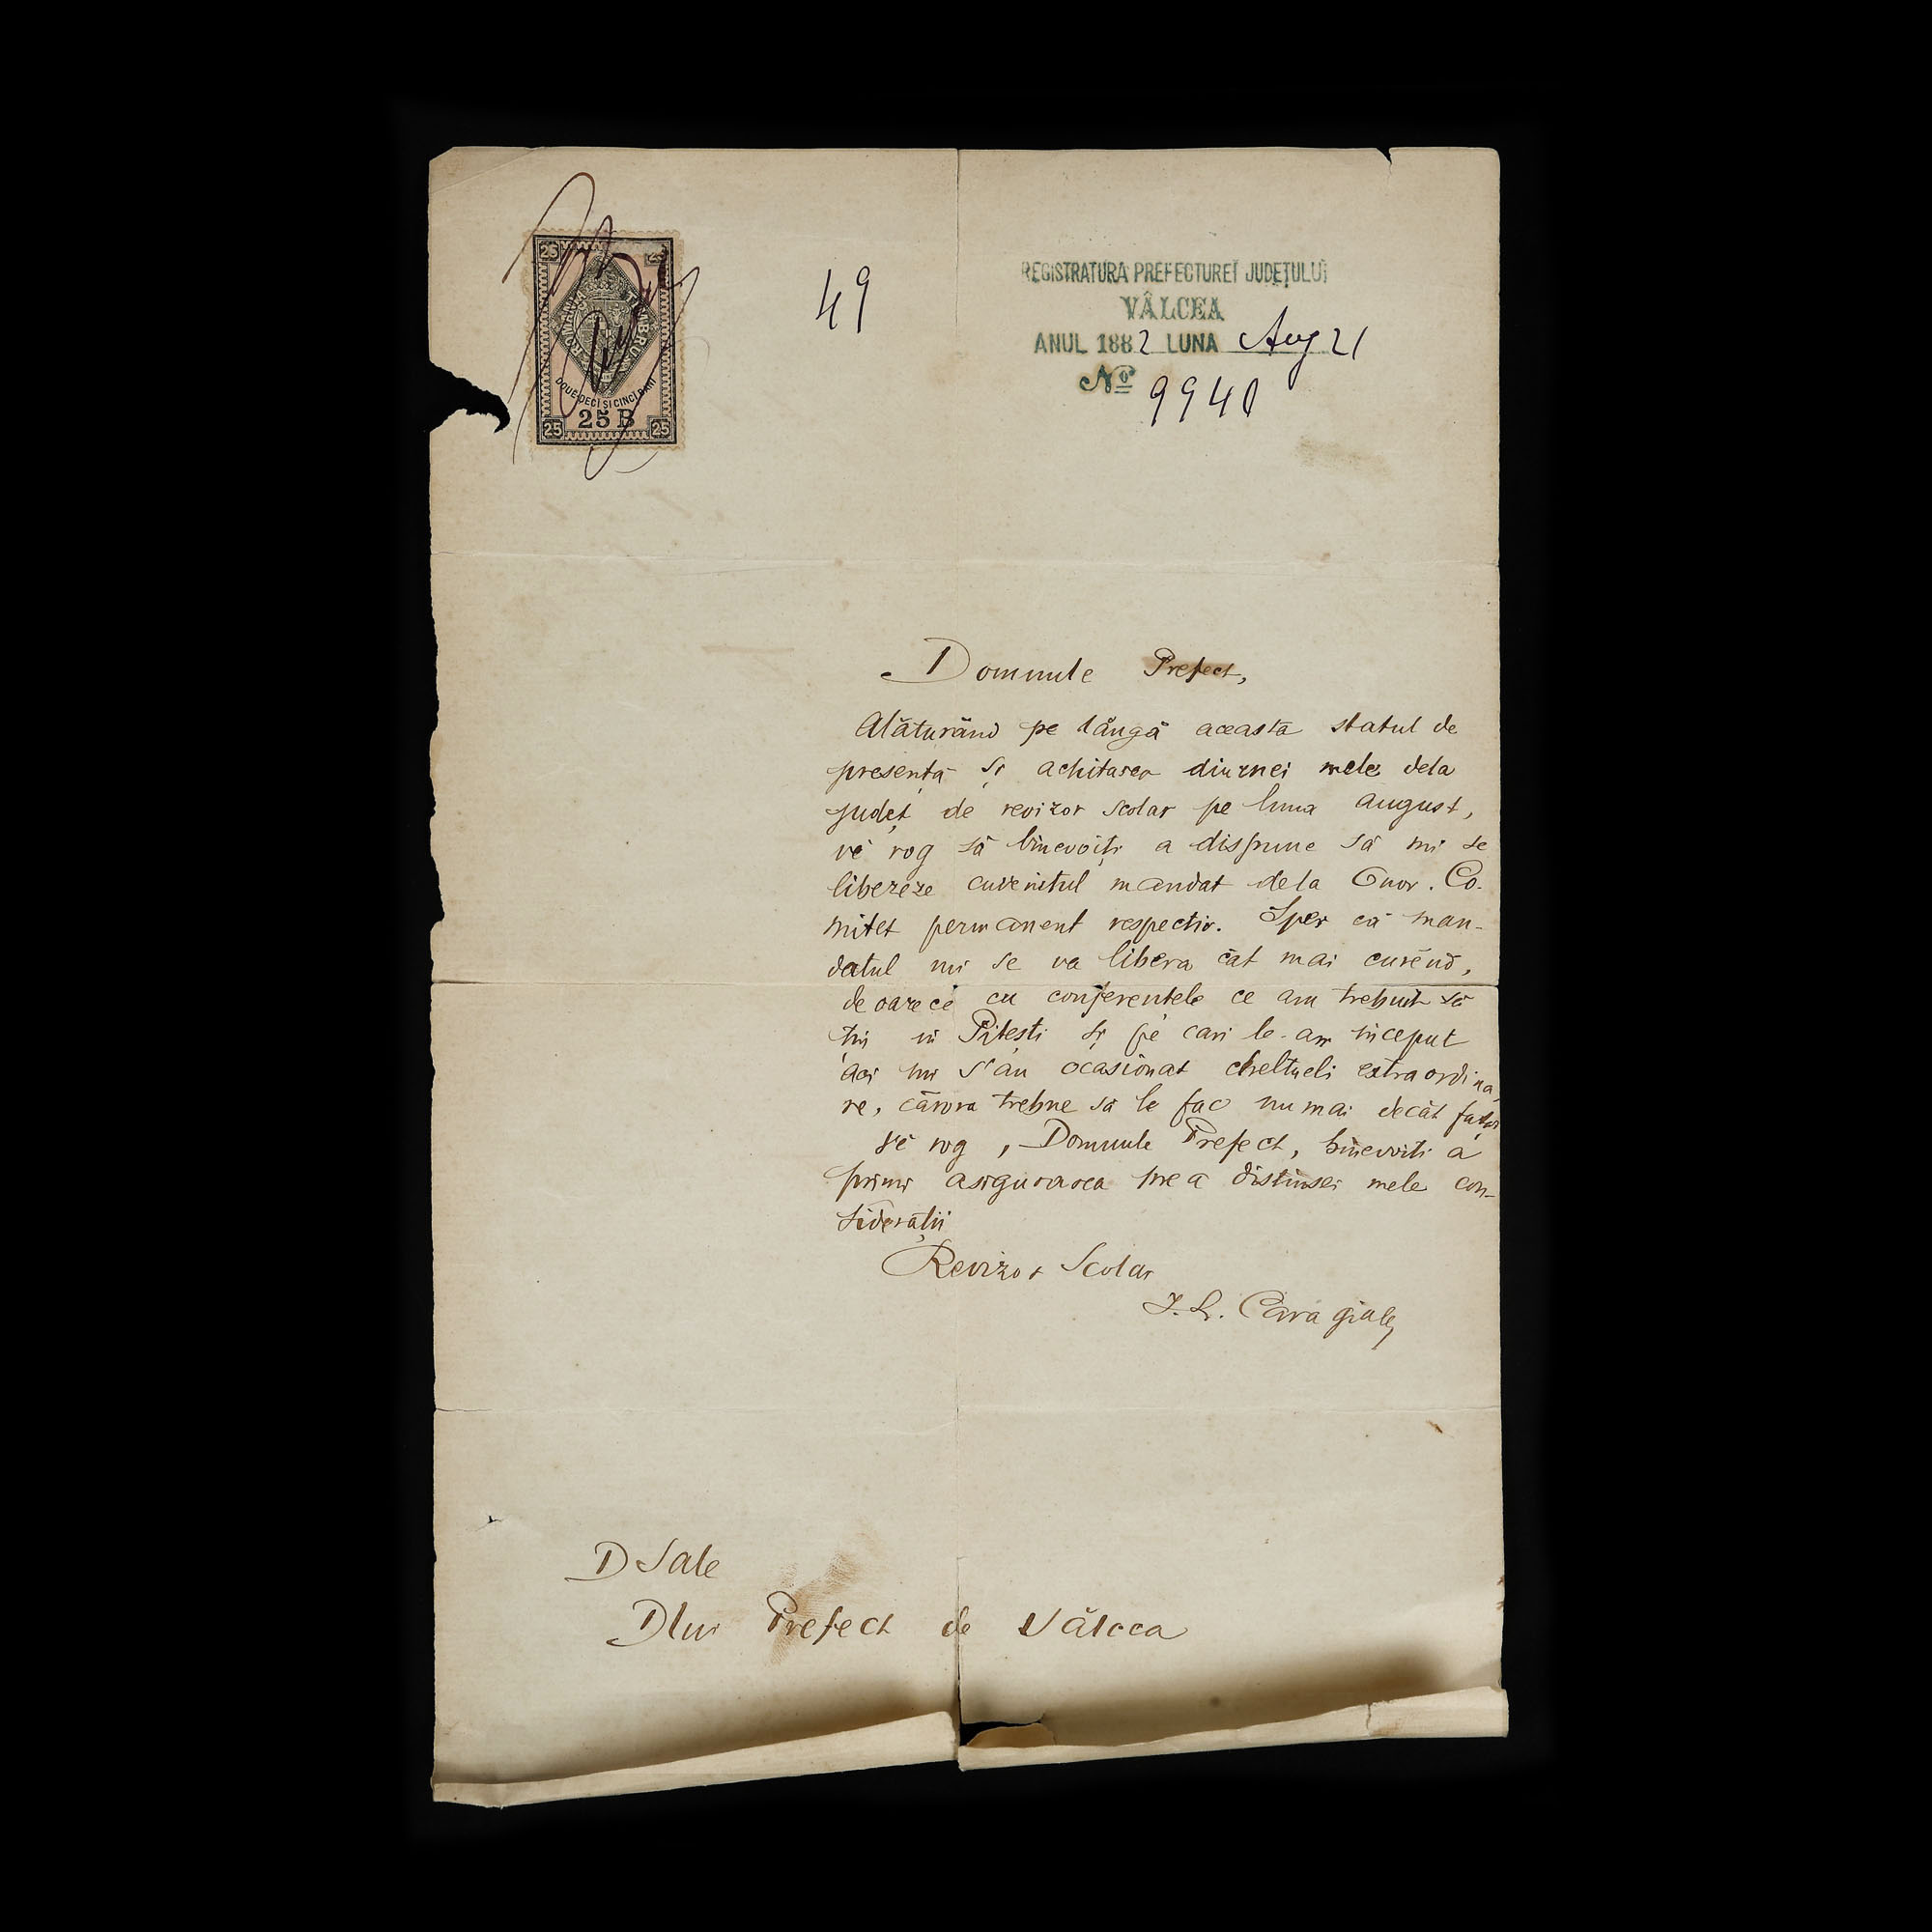 25
ROMANIA
TIMBRU
DOUE-DECI ȘI CINCI BANI
25 B
25 25
49
REGISTRATURA PREFECTUREĬ JUDEȚULUĬ
VÂLCEA
ANUL 1882 LUNA Aug 21
No 9940
Domnule Prefect,
Alăturând pe lângă aceasta statul de
presență și achitarea diurnei mele dela
județ de revizor scolar pe luna august,
vĕ rog să binevoiți a dispune să mi se
libereze cuvenitul mandat dela Onor. Co-
mitet permanent respectiv. Sper că man-
datul mi se va libera cât mai curĕnd,
deoarece cu conferențele ce am trebuit să
țin in Pitești și pe cari le-am inceput
aci mi s'au ocasionat cheltueli extraordina-
re, cărora trebue să le fac numai decât față
Vĕ rog, Domnule Prefect, binevoiti a
primi asigurarea prea distinsei mele con-
siderații
Revizor Scolar
I. L. Caragiale
D Sale
Dlui Prefect de Vâlcea